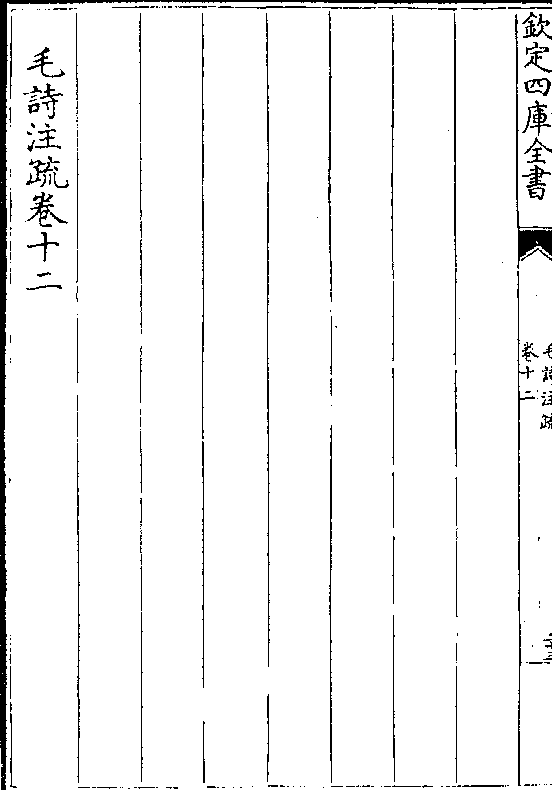 欽定四庫全書
毛詩注疏
卷十二
毛詩注疏卷十二